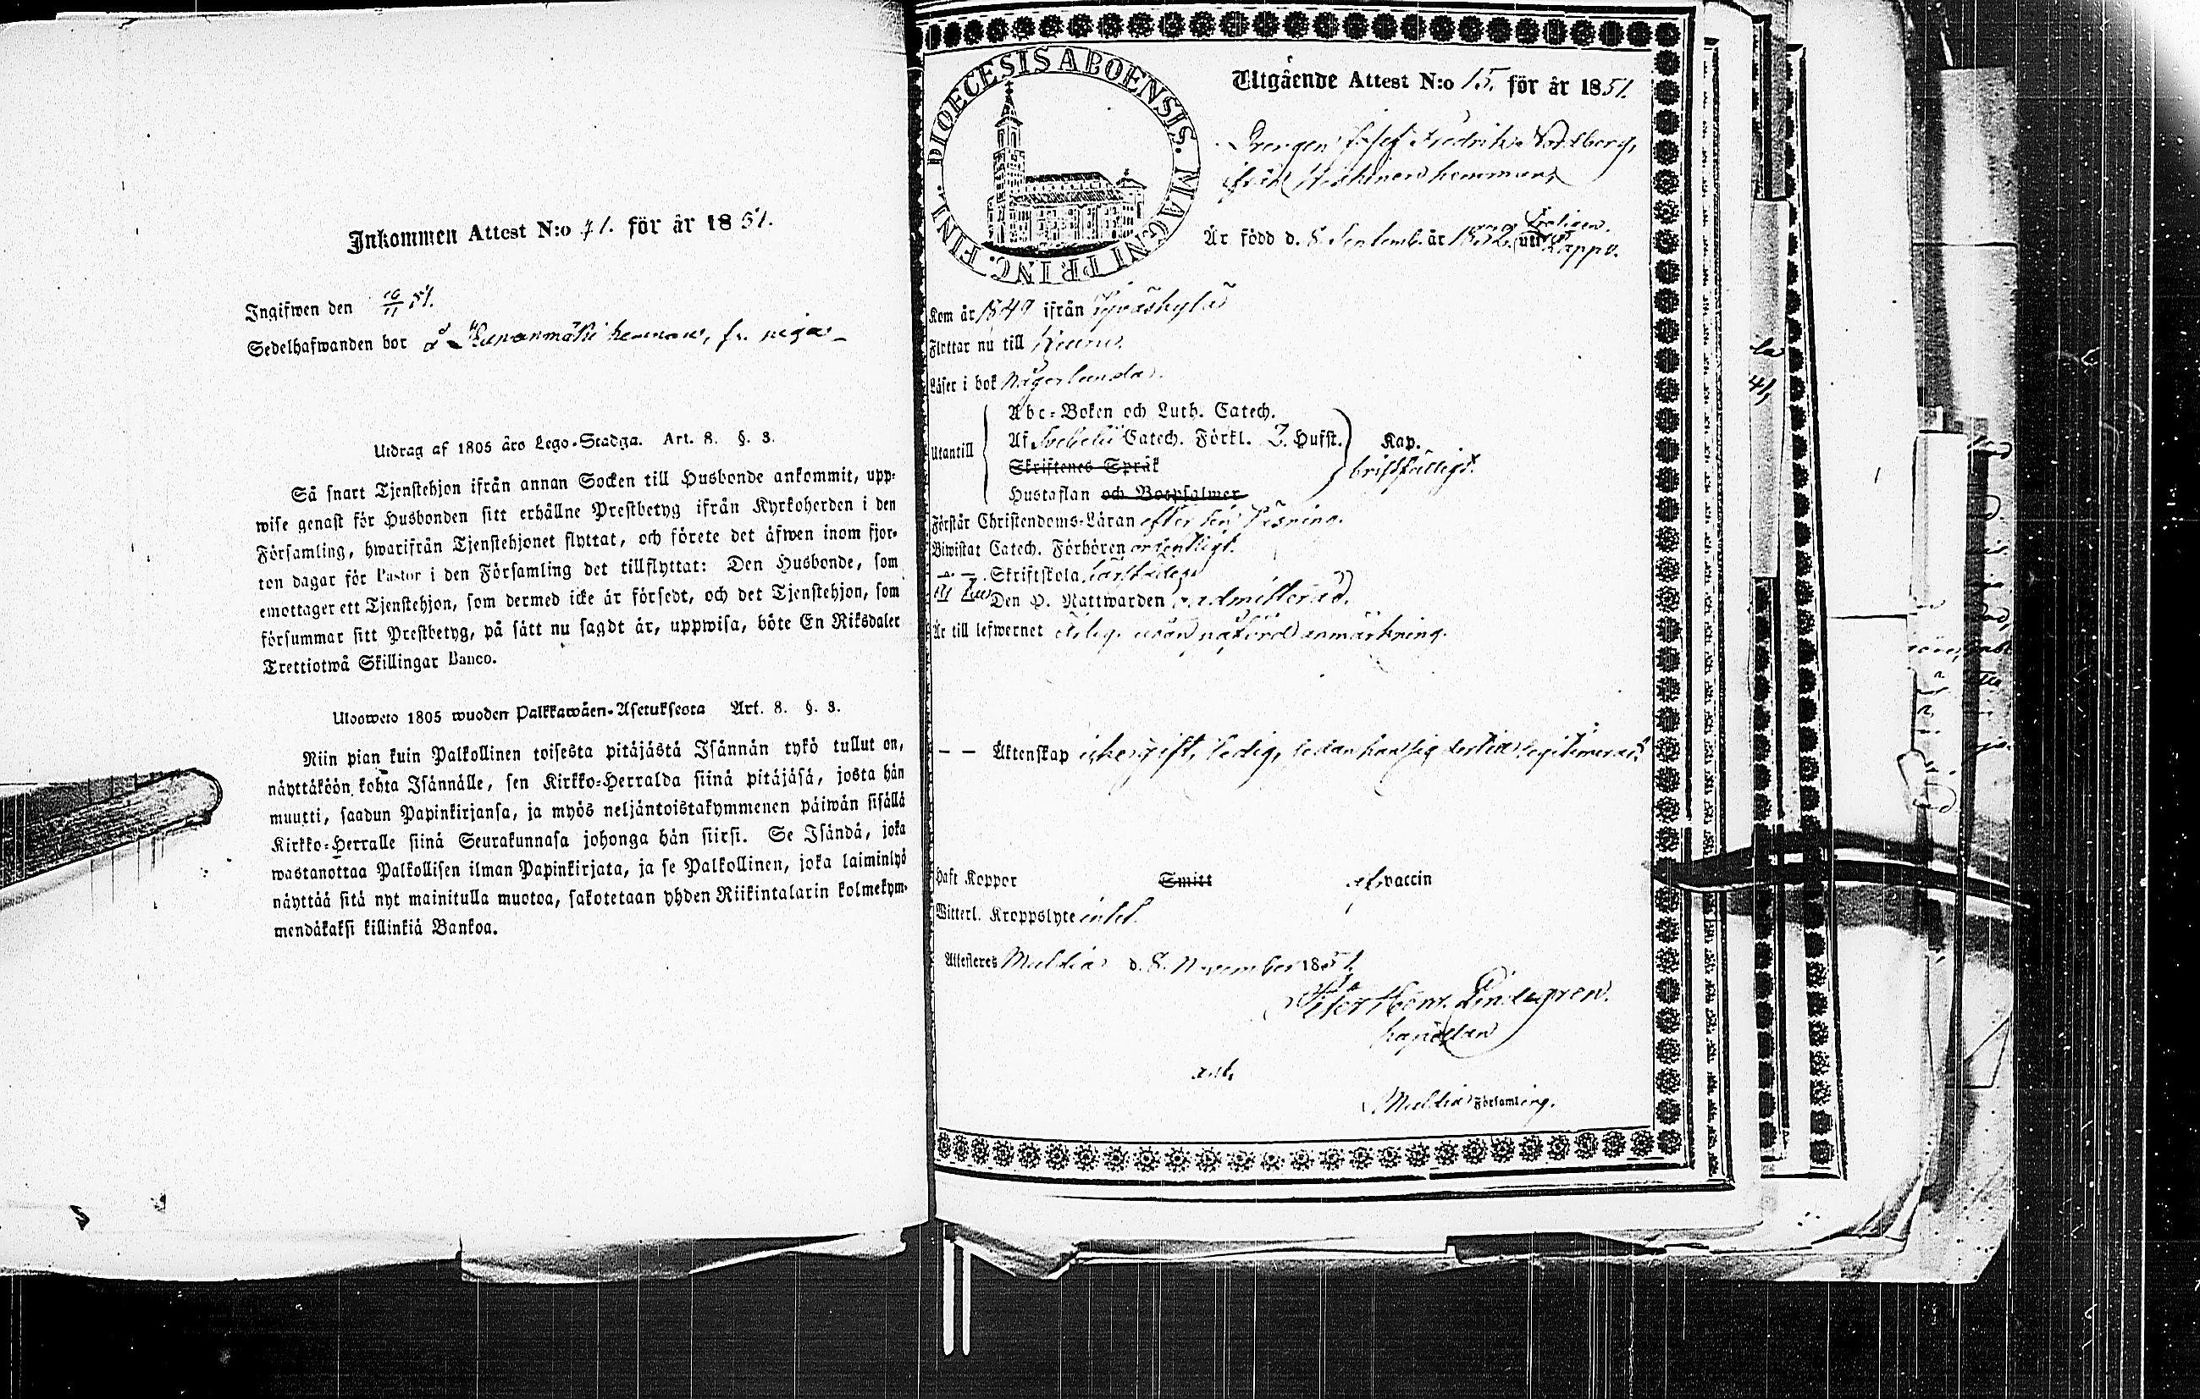 Inkommen Attest N:o 71. för år 1851.
Ingifwen den 16/11 51.
Sedelhafwanden bor å hemman,
Utdrag af 1805 års Lego-Stadga. Art. 8. §. 3.
Så snart Tjenstehjon ifrån annan Socken till Husbonde ankommit, upp-
wise genast för Husbonden sitt erhållne Prestbetyg ifrån Kyrkoherden i den
Församling, hwarifrån Tjenstehjonet flyttat, och förete det äfwen inom fjor-
ton dagar för Pastor i den Församling det tillflyttat: Den Husbonde, som
emottager ett Tjenstehjon, som dermed icke är försedt, och det Tjenstehjon, som
försummar sitt Prestbetyg, på sätt nu sagdt är, uppwisa, böte En Riksdaler
Trettiotwå Skillingar Banco.
Ulosweto 1805 wuoden Palkkawäen-Asetuksesta Art. 8. §. 3.
Niin pian kuin Palkollinen toisesta pitäjästä Isännän tykö tullut on,
näyttäköön kohta Isännälle, sen Kirkko-Herralda siinä pitäjäsä, josta hän
muutti, saadun Papinkirjansa, ja myös neljäntoistakymmenen päiwän sisällä
Kirkko-Herralle siinä Seurakunnasa johonga hän siirsi. Se Isändä, joka
wastanottaa Palkollisen ilman Papinkirjata, ja se Palkollinen, joka laiminlyö
näyttää sitä nyt mainitulla muotoa, sakotetaan yhden Riikintalarin kolmekym-
mendäkaksi killinkiä Bankoa.
DIOECESIS ABOENSIS. MAGNI PRINC. FINL.
Utgående Attest N:o 15. för år 1851.
Drengen Josef Fredrik
ifrån hemman,
Är född d. 8 Septemb. år 1832. uti Lappo.
Kom år 1849 ifrån Jyväskylä
Flyttar nu till Keuru.
Läser i bok någorlunda.
Utantill
Abc-Boken och Luth. Catech.
Af Svebelii Catech. Förkl. 2. Hufst. Kap.
Skriftenes Språk bristfälligt.
Hustaflan och Botpsalmer
Förstår Christendoms-Läran efter sin läsning.
Biwistat Catech. Förhören ordentligt.
— — Skriftskola
Den H. Nattwarden admitterad.
Är till lefwernet utan anmärkning.
— — Äktenskap icke gift, ledig, sedan han sig dertill legitimerat.
Haft Koppor Smitt af vaccin
Witterl. Kroppslyte intet.
Attesteras Multia d. 8. November 1851,
Lindegren.
kapellan
Multia Församling.